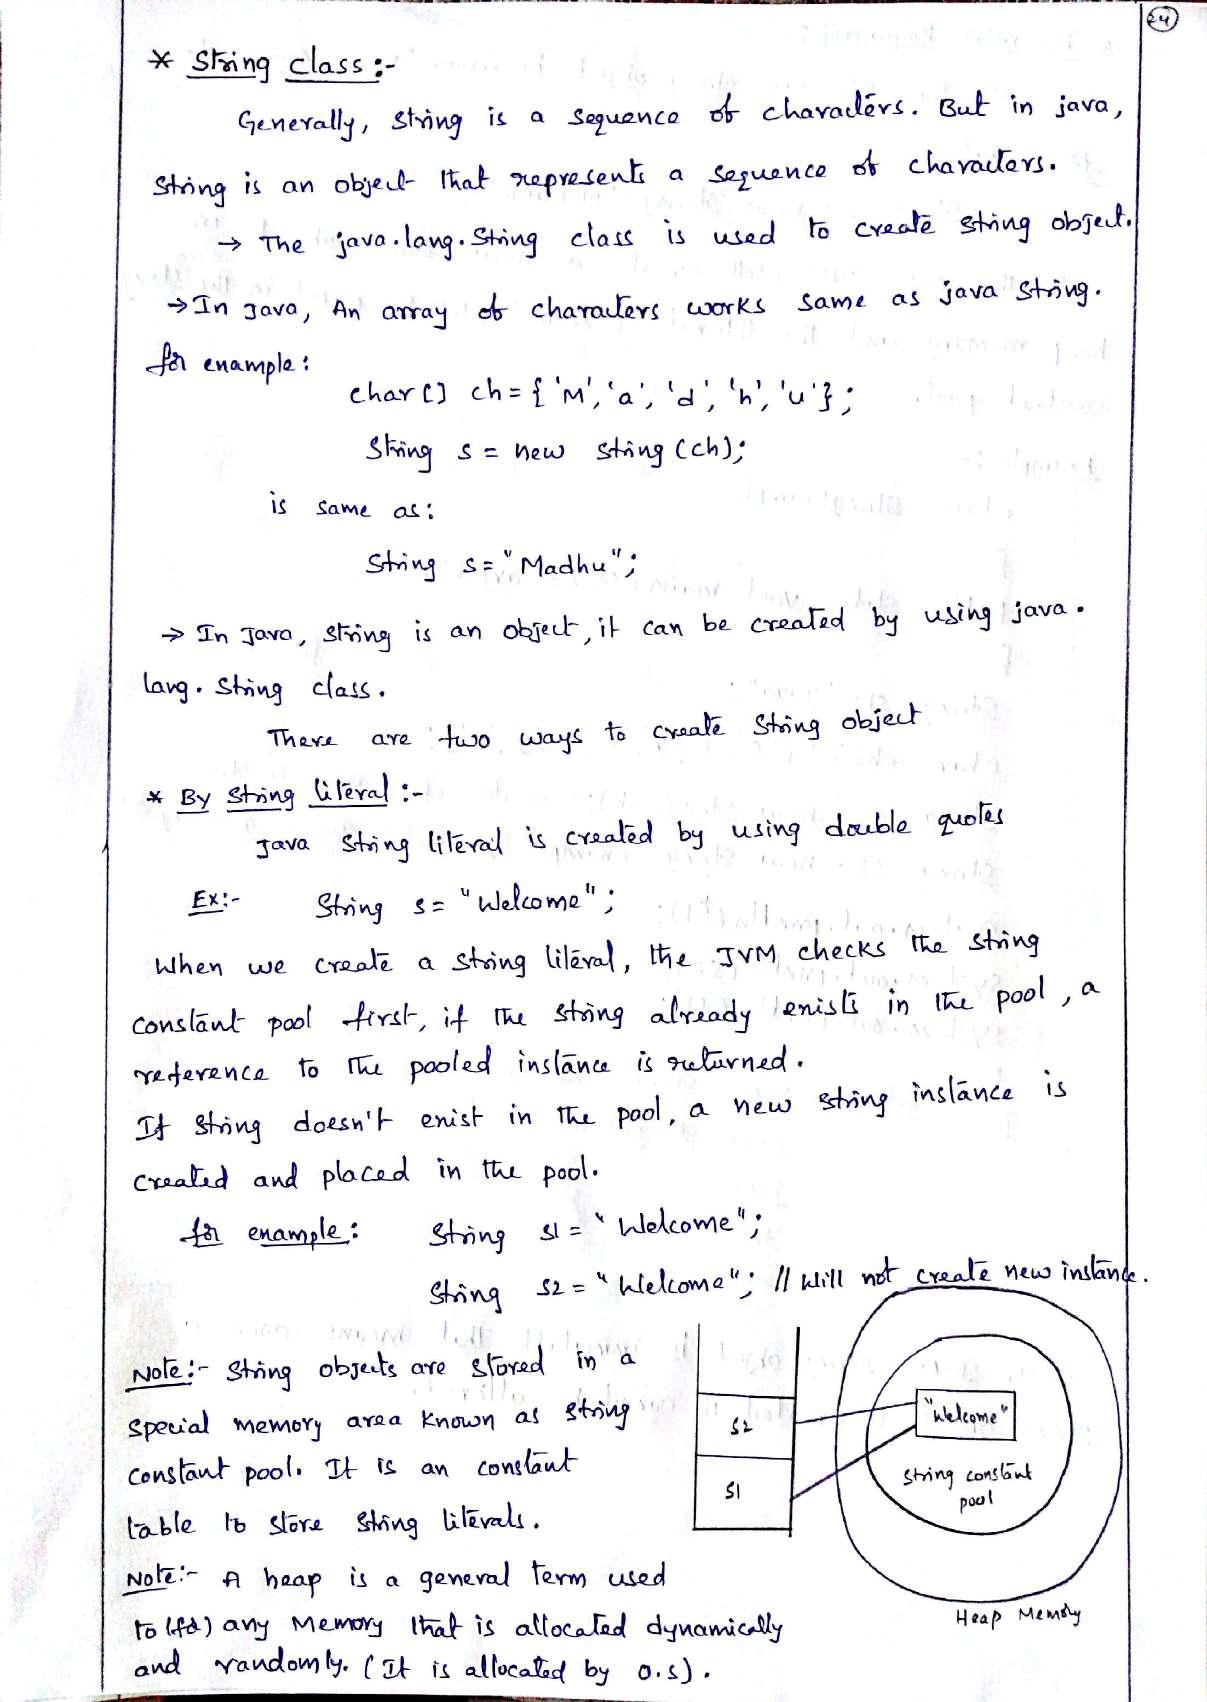 24
* String class :-
Generally, string is a sequence of characters. But in java,
string is an object that represents a sequence of characters.
→ The java.lang.String class is used to create string object.
→ In Java, An array of characters works same as java string.
for example:
char[] ch = { 'M', 'a', 'd', 'h', 'u' };
String s = new string (ch);
is same as:
String s = "Madhu";
→ In Java, string is an object, it can be created by using java.
lang. String class.
There are two ways to create String object
* By String literal :-
Java string literal is created by using double quotes
Ex:- String s = "Welcome";
When we create a string literal, the JVM checks the string
constant pool first, if the string already exists in the pool, a
reference to the pooled instance is returned.
If string doesn't exist in the pool, a new string instance is
created and placed in the pool.
for example: String s1 = "Welcome";
String s2 = "Welcome"; // will not create new instance.
Note:- String objects are stored in a
special memory area known as string
constant pool. It is an constant
table to store string literals.
Note:- A heap is a general term used
to (for) any Memory that is allocated dynamically
and randomly. (It is allocated by O.S).
S2
S1
"Welcome"
String constant
pool
Heap Memory